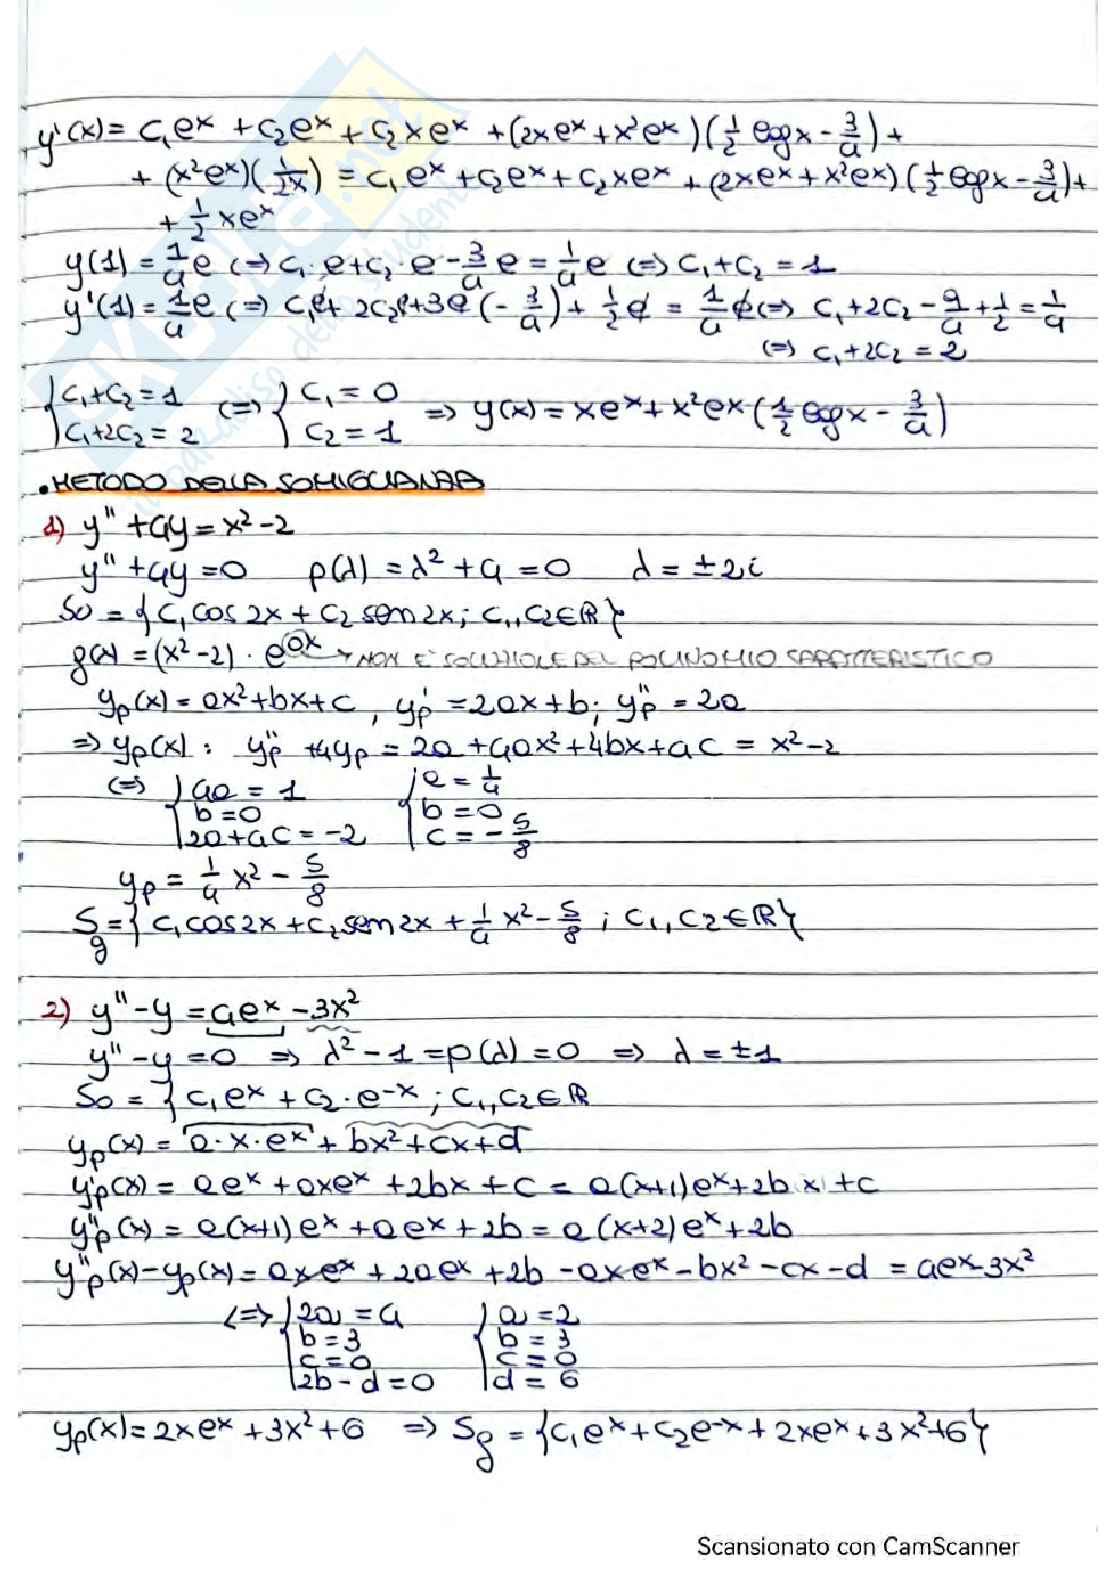 y'(x) = c₁eˣ + c₂eˣ + c₂xeˣ + (2xeˣ + x²eˣ)(1/2 log x - 3/4) +
+ (x²eˣ)(1/2x) = c₁eˣ + c₂eˣ + c₂xeˣ + (2xeˣ + x²eˣ)(1/2 log x - 3/4) +
+ 1/2 xeˣ
y(1) = 1/4 e (=) c₁·e + c₂·e - 3/4 e = 1/4 e (=) c₁ + c₂ = 1
y'(1) = 1/4 e (=) c₁e + 2c₂e + 3e(- 3/4) + 1/2 e = 1/4 e (=) c₁ + 2c₂ - 9/4 + 1/2 = 1/4
(=) c₁ + 2c₂ = 2
{ c₁ + c₂ = 1 (=) { c₁ = 0 => y(x) = xeˣ + x²eˣ(1/2 log x - 3/4)
{ c₁ + 2c₂ = 2 { c₂ = 1
• METODO DELLA SOMIGLIANZA
1) y'' + 4y = x² - 2
y'' + 4y = 0 p(λ) = λ² + 4 = 0 λ = ±2i
So = { c₁ cos 2x + c₂ sen 2x ; c₁, c₂ ∈ ℝ }
g(x) = (x² - 2) · e⁰ˣ → NON È SOLUZIONE DEL POLINOMIO CARATTERISTICO
yp(x) = ax² + bx + c , yp' = 2ax + b ; yp'' = 2a
=> yp(x) : yp'' + 4yp = 2a + 4ax² + 4bx + 4c = x² - 2
(=) { 4a = 1 { a = 1/4
{ b = 0 { b = 0
{ 2a + 4c = -2 { c = - 5/8
yp = 1/4 x² - 5/8
Sg = { c₁ cos 2x + c₂ sen 2x + 1/4 x² - 5/8 ; c₁, c₂ ∈ ℝ }
2) y'' - y = 4eˣ - 3x²
y'' - y = 0 => λ² - 1 = p(λ) = 0 => λ = ±1
So = { c₁eˣ + c₂·e⁻ˣ ; c₁, c₂ ∈ ℝ
yp(x) = a·x·eˣ + bx² + cx + d
yp'(x) = aeˣ + axeˣ + 2bx + c = a(x+1)eˣ + 2bx + c
yp''(x) = a(x+1)eˣ + aeˣ + 2b = a(x+2)eˣ + 2b
yp''(x) - yp(x) = axeˣ + 2aeˣ + 2b - axeˣ - bx² - cx - d = 4eˣ - 3x²
(=) { 2a = 4 { a = 2
{ b = 3 { b = 3
{ c = 0 { c = 0
{ 2b - d = 0 { d = 6
yp(x) = 2xeˣ + 3x² + 6 => Sg = { c₁eˣ + c₂e⁻ˣ + 2xeˣ + 3x² + 6 }
Scansionato con CamScanner